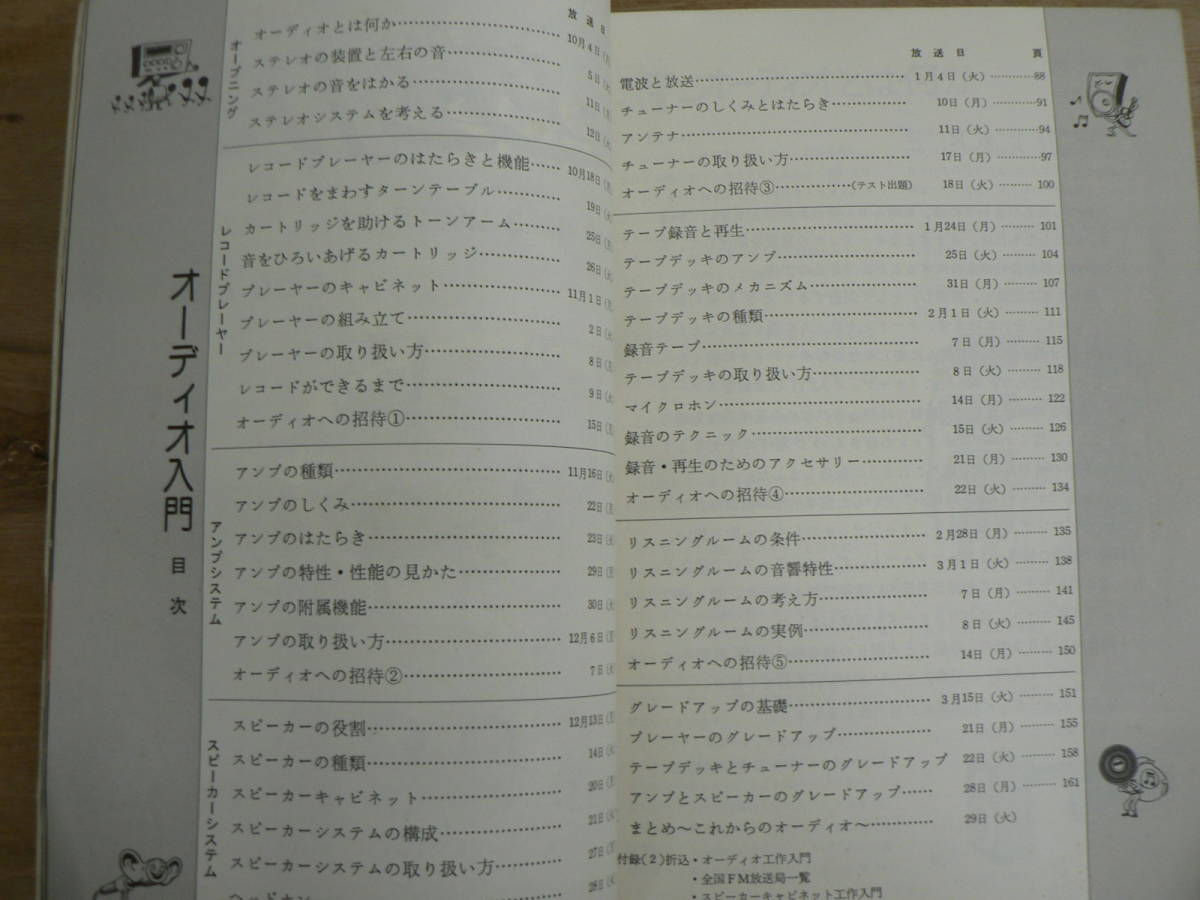 オーディオ入門 目次
放送日
オープニング
オーディオとは何か……10月4日(月)
ステレオの装置と左右の音……5日(火)
ステレオの音をはかる……11日(月)
ステレオシステムを考える……12日(火)
レコードプレーヤー
レコードプレーヤーのはたらきと機能……10月18日(月)
レコードをまわすターンテーブル……19日(火)
カートリッジを助けるトーンアーム……25日(月)
音をひろいあげるカートリッジ……26日(火)
プレーヤーのキャビネット……11月1日(月)
プレーヤーの組み立て……2日(火)
プレーヤーの取り扱い方……8日(月)
レコードができるまで……9日(火)
オーディオへの招待①……15日(月)
アンプシステム
アンプの種類……11月16日(火)
アンプのしくみ……22日(月)
アンプのはたらき……23日(火)
アンプの特性・性能の見かた……29日(月)
アンプの附属機能……30日(火)
アンプの取り扱い方……12月6日(月)
オーディオへの招待②……7日(火)
スピーカーシステム
スピーカーの役割……12月13日(月)
スピーカーの種類……14日(火)
スピーカーキャビネット……20日(月)
スピーカーシステムの構成……21日(火)
スピーカーシステムの取り扱い方……27日(月)
ヘッドホン……28日(火)
放送日 頁
電波と放送……1月4日(火)……88
チューナーのしくみとはたらき……10日(月)……91
アンテナ……11日(火)……94
チューナーの取り扱い方……17日(月)……97
オーディオへの招待③……(テスト出題) 18日(火)……100
テープ録音と再生……1月24日(月)……101
テープデッキのアンプ……25日(火)……104
テープデッキのメカニズム……31日(月)……107
テープデッキの種類……2月1日(火)……111
録音テープ……7日(月)……115
テープデッキの取り扱い方……8日(火)……118
マイクロホン……14日(月)……122
録音のテクニック……15日(火)……126
録音・再生のためのアクセサリー……21日(月)……130
オーディオへの招待④……22日(火)……134
リスニングルームの条件……2月28日(月)……135
リスニングルームの音響特性……3月1日(火)……138
リスニングルームの考え方……7日(月)……141
リスニングルームの実例……8日(火)……145
オーディオへの招待⑤……14日(月)……150
グレードアップの基礎……3月15日(火)……151
プレーヤーのグレードアップ……21日(月)……155
テープデッキとチューナーのグレードアップ 22日(火)……158
アンプとスピーカーのグレードアップ……28日(月)……161
まとめ〜これからのオーディオ〜……29日(火)
付録(2)折込・オーディオ工作入門
・全国FM放送局一覧
・スピーカーキャビネット工作入門